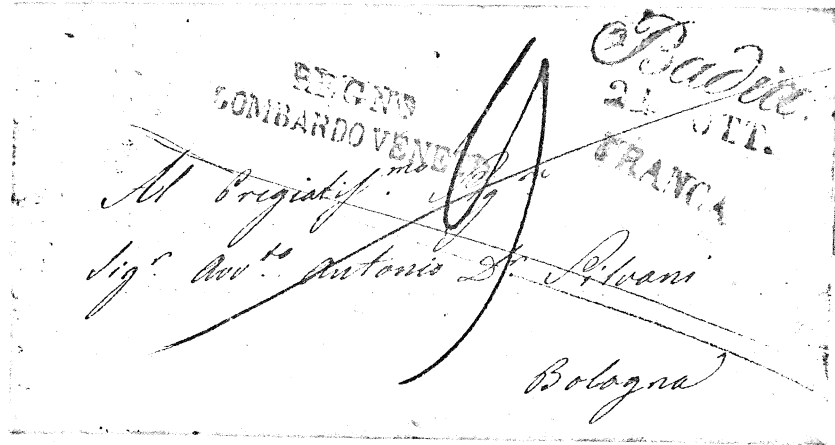 REGNO
LOMBARDO VENETO
Badia.
21 OTT.
FRANCA
Al Pregiatiss.mo Sigre
Sigr. Avvto Antonio Dr. Silvani
Bologna